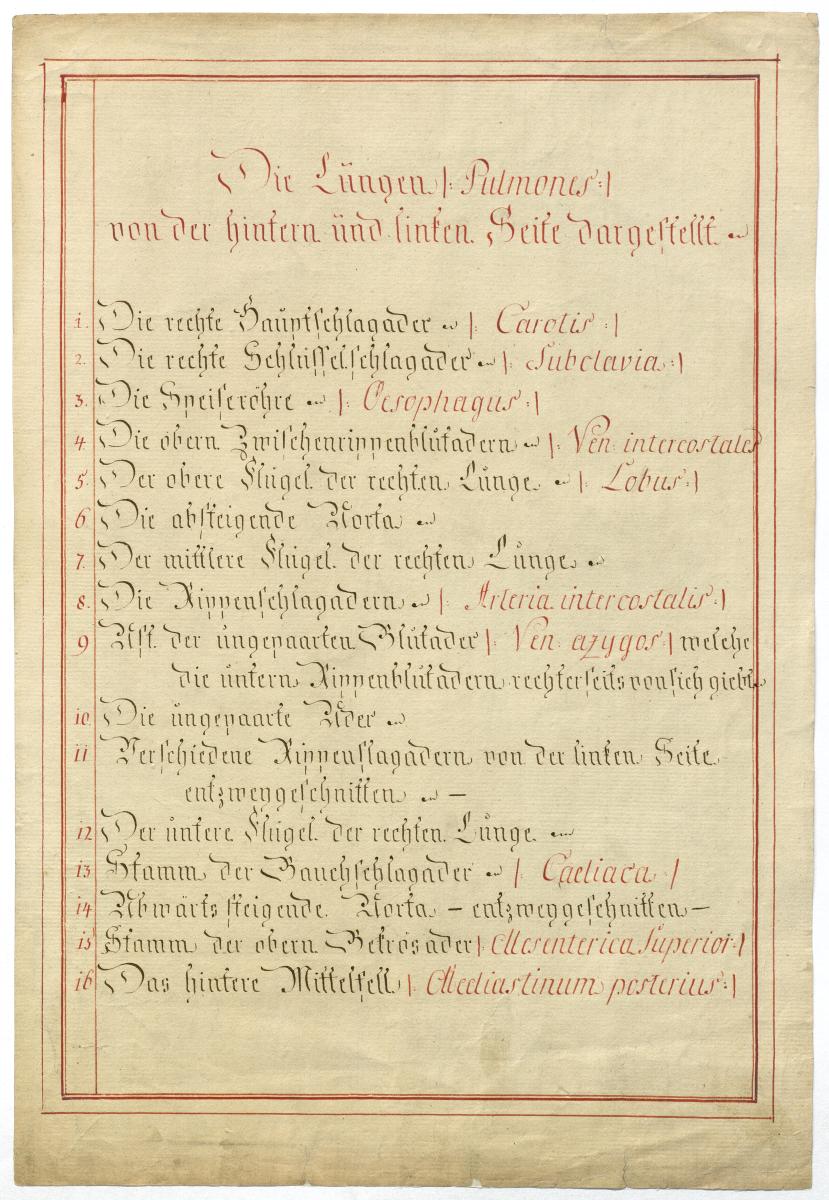 Die Lüngen |: Pulmones :|
von der hintern ünd linken Seite dargestellt
1. Die rechte Hauptschlagader |: Carotis :|
2. Die rechte Schlüsselschlagader |: Subclavia :|
3. Die Speiseröhre |: Oesophagus :|
4. Die obern Zwischenrippenblutadern |: Ven: intercostales
5. Der obere Flügel der rechten Lunge |: Lobus :|
6. Die absteigende Aorta
7. Der mittlere Flügel der rechten Lunge
8. Die Rippenschlagadern |: Arteria intercostalis :|
9 Ast der ungepaarten Blutader |: Ven: azygos :| welche
die untern Rippenblutadern rechterseits von sich giebt
10 Die ungepaarte Ader
11 Verschiedene Rippenslagadern von der linken Seite
entzweygeschnitten —
12 Der untere Flügel der rechten Lunge
13 Stamm der Bauchschlagader |: Caeliaca :|
14 Abwärts steigende Aorta — entzweygeschnitten —
15 Stamm der obern Bekrösader |: Mesenterica Superior :|
16 Das hintere Mittelfell |: Mediastinum posterius :|